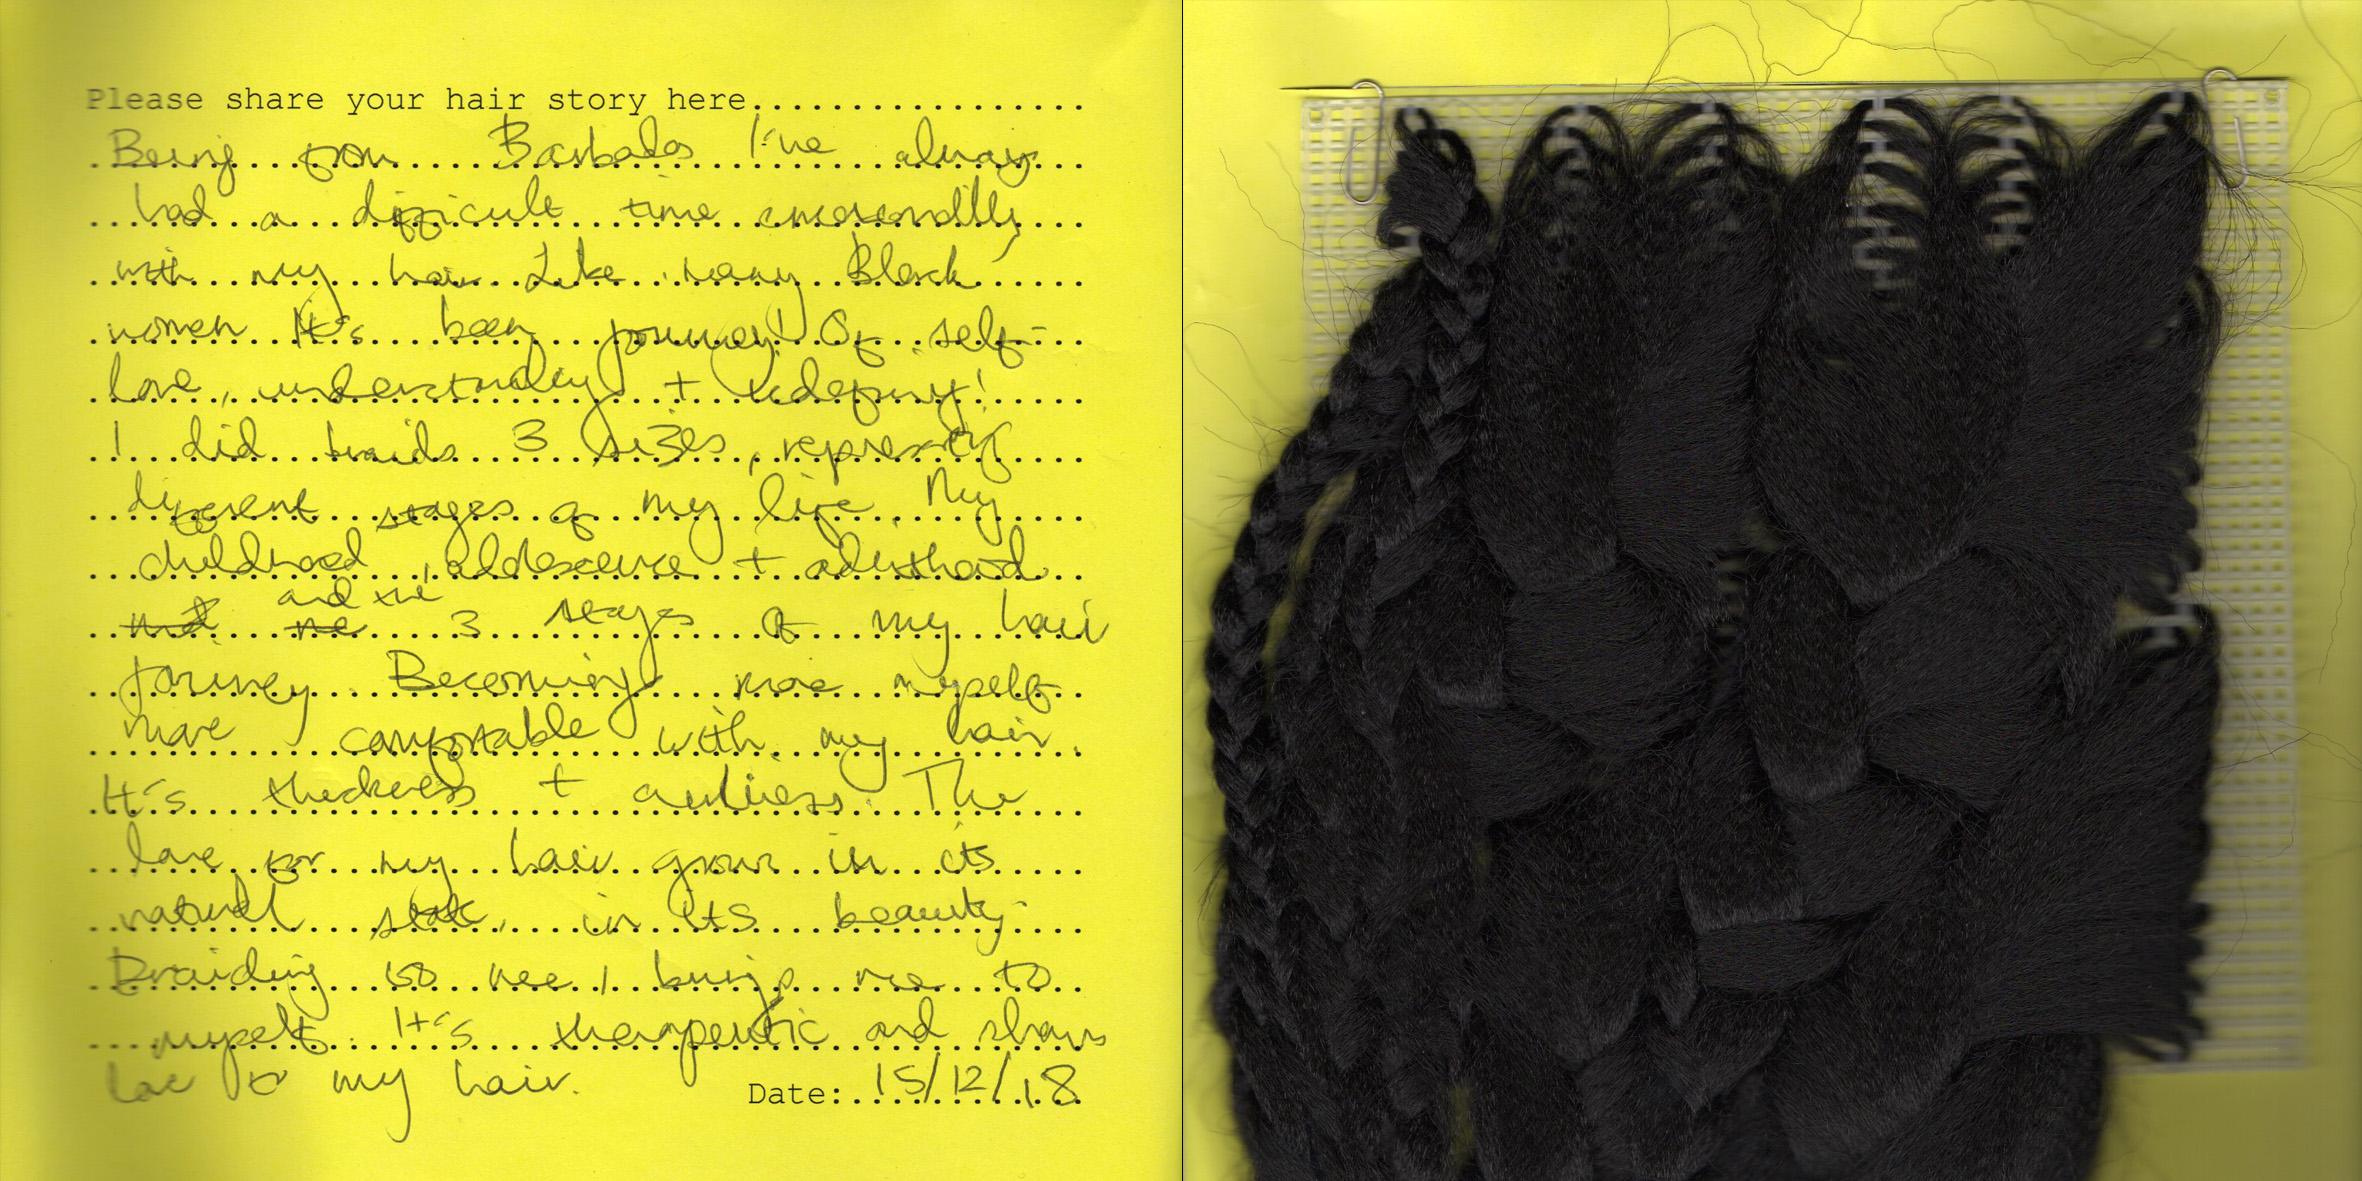 Please share your hair story here..................
Being from Barbados I've always
had a difficult time emotionally
with my hair. Like many Black
women It's been journey! Of self-
love, understanding + redefining!
I did braids 3 sizes, representing
different stages of my life. My
childhood, aldolescence + adulthood
and the
3 stages of my hair
journey. Becoming more myself
more comfortable with my hair.
It's thickness + curliness. The
love for my hair grows in its
natural state, in its beauty.
Braiding to me, brings me to
myself. It's therapeutic and shows
love to my hair.
Date: 15/12/18